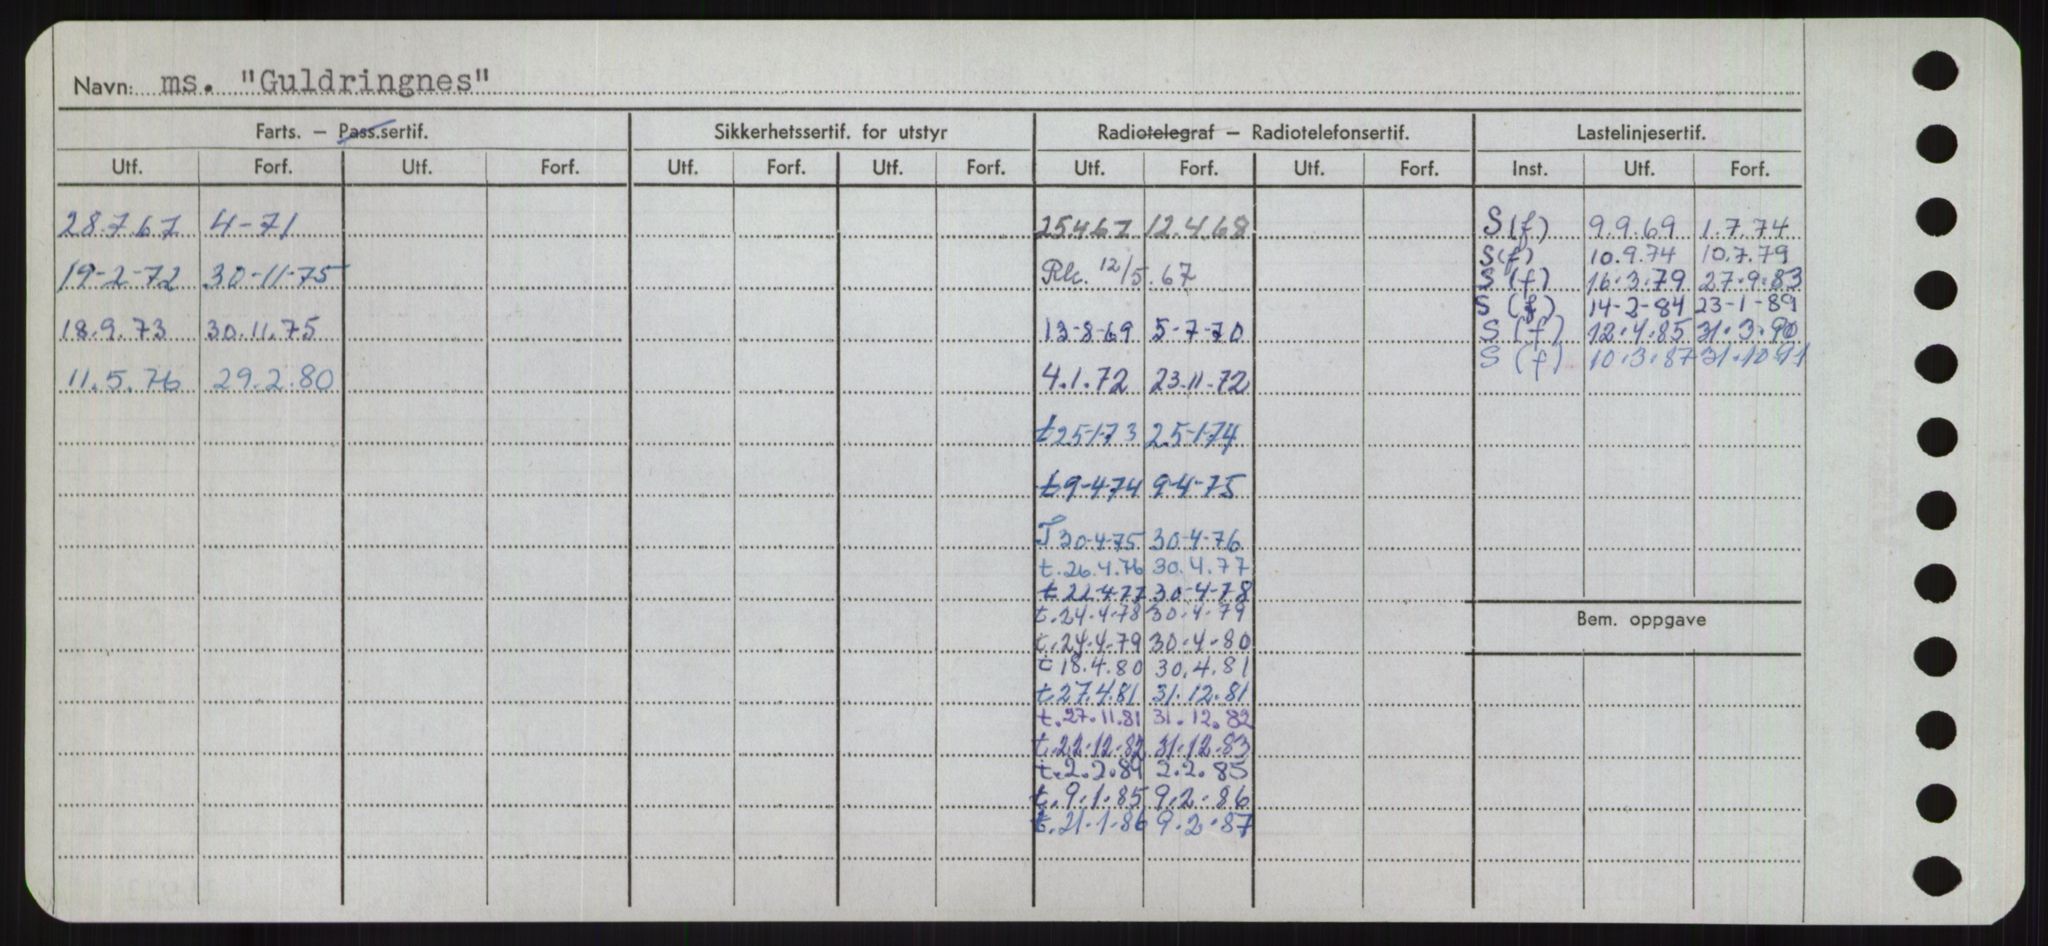 Navn: ms. "Guldringnes"
Farts. – Pass.sertif. Sikkerhetssertif. for utstyr Radiotelegraf – Radiotelefonsertif. Lastelinjesertif.
Utf. Forf. Utf. Forf. Utf. Forf. Utf. Forf. Utf. Forf. Utf. Forf. Inst. Utf. Forf.
28.7.67 4-71 25.4.67 12.4.68 S(f) 9.9.69 1.7.74
S(f) 10.9.74 10.7.79
19-2-72 30-11-75 Rk. 12/5.67 S(f) 16.3.79 27.9.83
S (f) 14-2-84 23-1-89
18.9.73 30.11.75 13-8-69 5-7-70 S (f) 12.4.85 31.3.90
S (f) 10.3.87 31.10.91
11.5.76 29.2.80 4.1.72 23.11.72
t 25-1-73 25-1-74
t 9-4-74 9-4-75
T 30-4-75 30-4-76
t. 26.4.76 30.4.77
t 22-4-77 30-4-78
t. 24.4.78 30.4.79
t. 24.4.79 30.4.80
Bem. oppgave
t 18.4.80 30.4.81
t. 27.4.81 31.12.81
t. 27.11.81 31.12.82
t. 22.12.82 31.12.83
t. 2.2.84 2.2.85
t. 9.1.85 9.2.86
t. 21.1.86 9.2.87